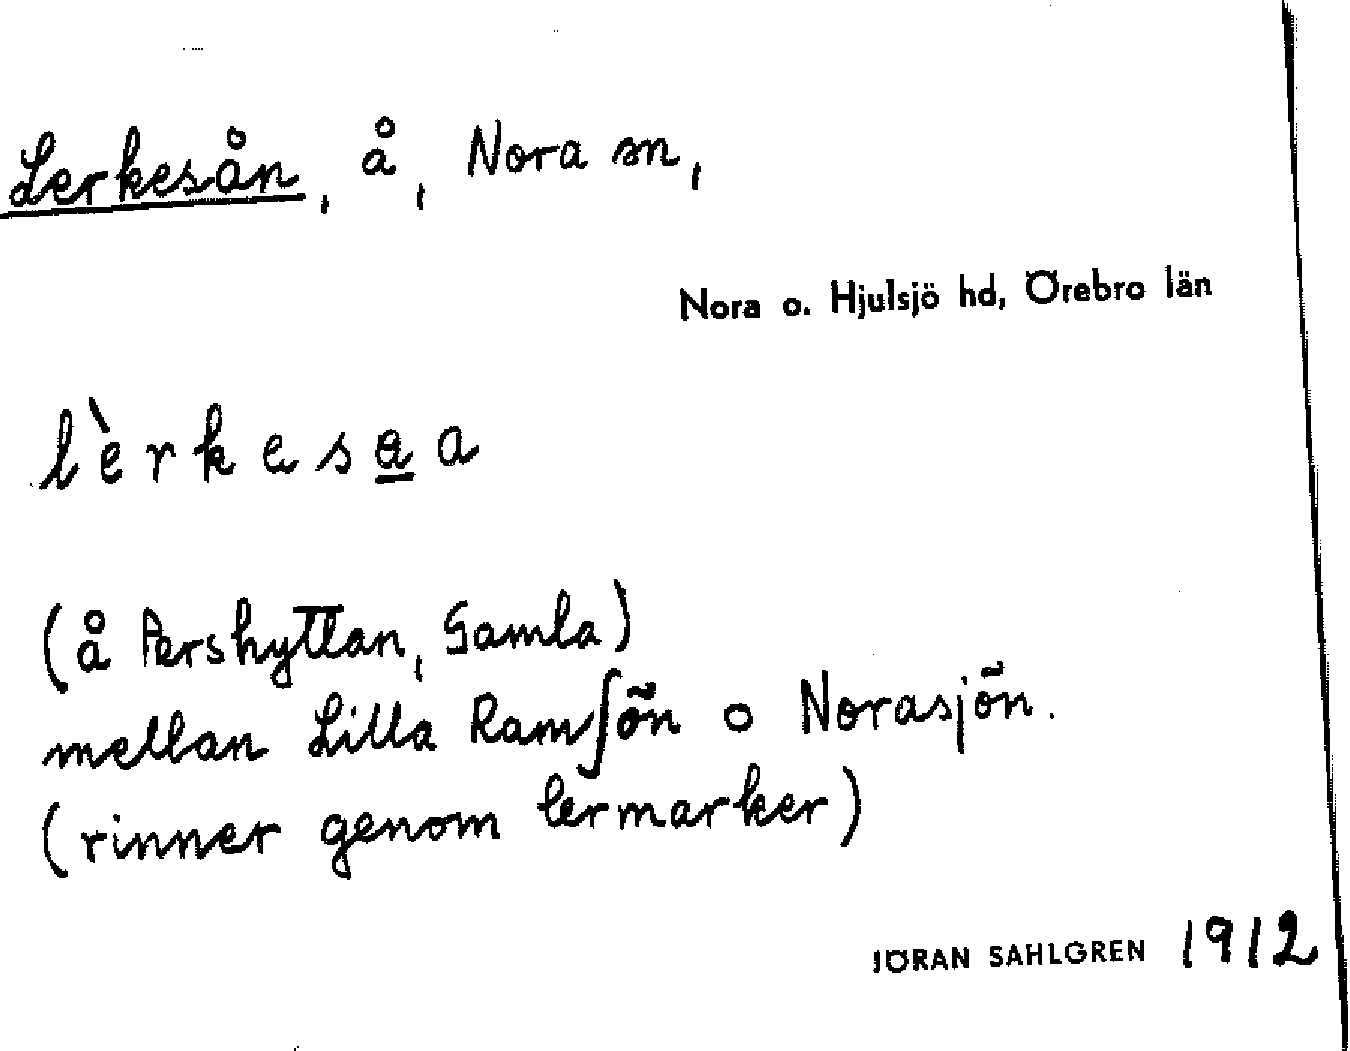 Lerkesån, å, Nora sn,
Nora o. Hjulsjö hd, Örebro län
lèrkesa̲a
(å Pershyttan, Gamla)
mellan Lilla Ramsjön o Norasjön.
(rinner genom lermarker)
JÖRAN SAHLGREN 1912